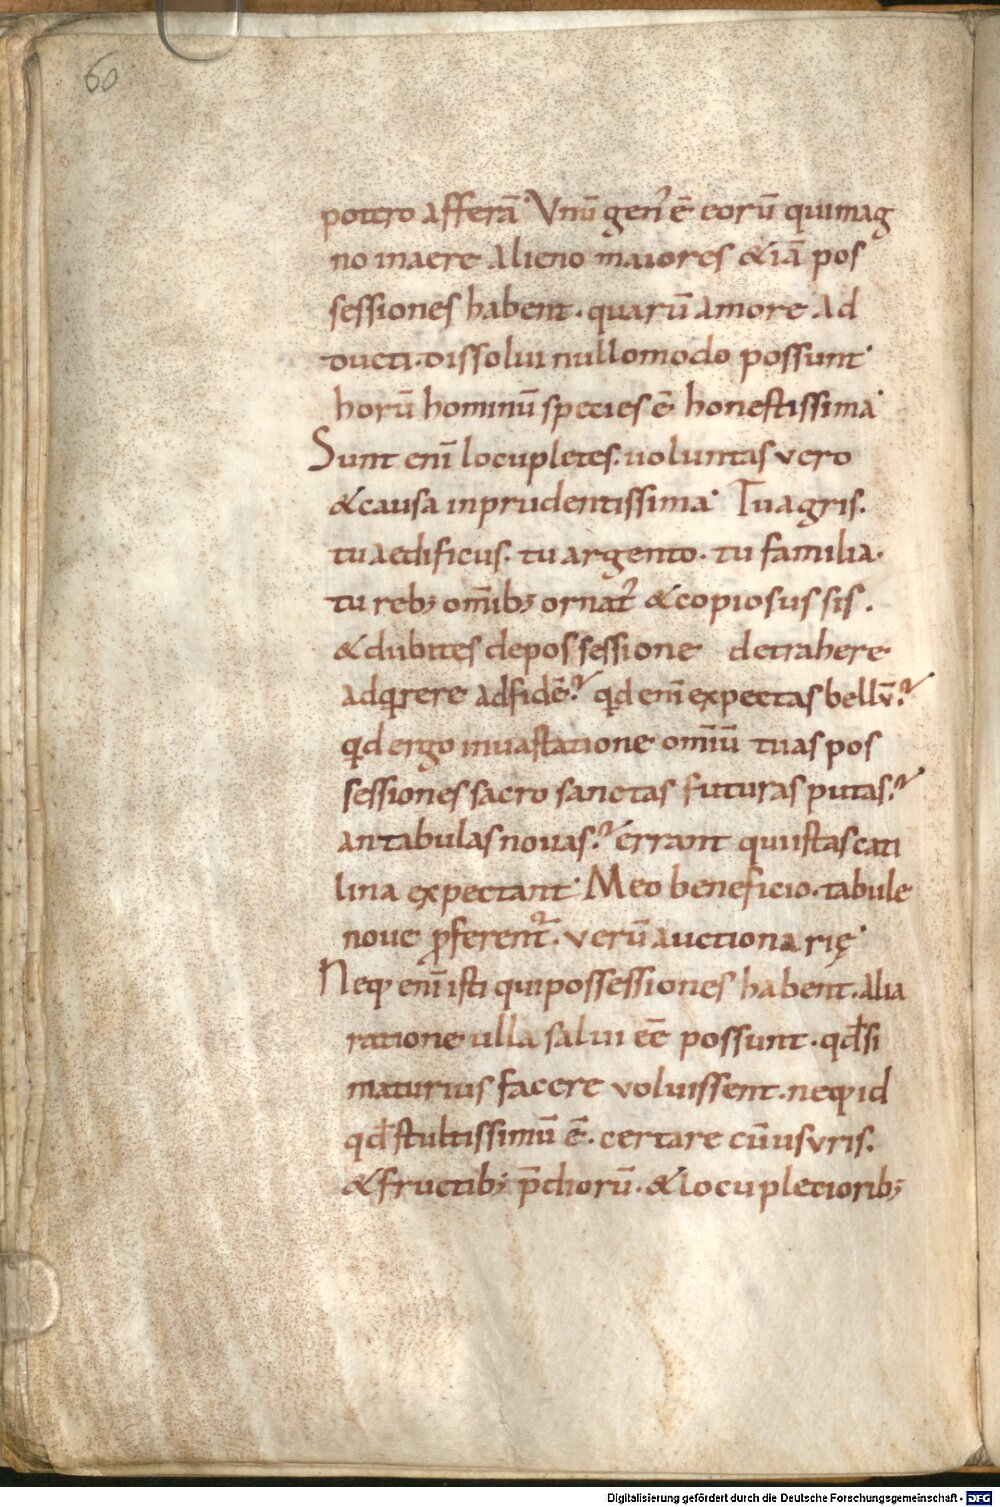 60
potero afferā Vnū gen͛ ē eorū qui mag
no in aere alieno maiores & iā pos
sessiones habent. quarū amore ad
ducti. dissolui nullomodo possunt
horū hominū species ē honestissima
Sunt enī locupletes. uoluntas vero
& causa inprudentissima Tu agris.
tu aedificiis. tu argento. tu familia.
tu reb; om̄ib; ornat͛ & copiosus sis.
& dubites de possessione detrahere
adqrere ad fidē? qd enī expectas bellū?
qd ergo in uastatione omīū tuas pos
sessiones sacro sanctas futuras putas?
an tabulas nouas? errant qui istas cati
lina expectant Meo beneficio. tabule
noue ꝓferent͛. verū auctionarię
Neq; enī isti qui possessiones habent. alia
ratione ulla salui eē possunt. qđ si
maturius facere voluissent. neq; id
qđ stultissimū ē. certare cū usuris.
& fructib; p̄diorū. & locupletiorib;
Digitalisierung gefördert durch die Deutsche Forschungsgemeinschaft - DFG